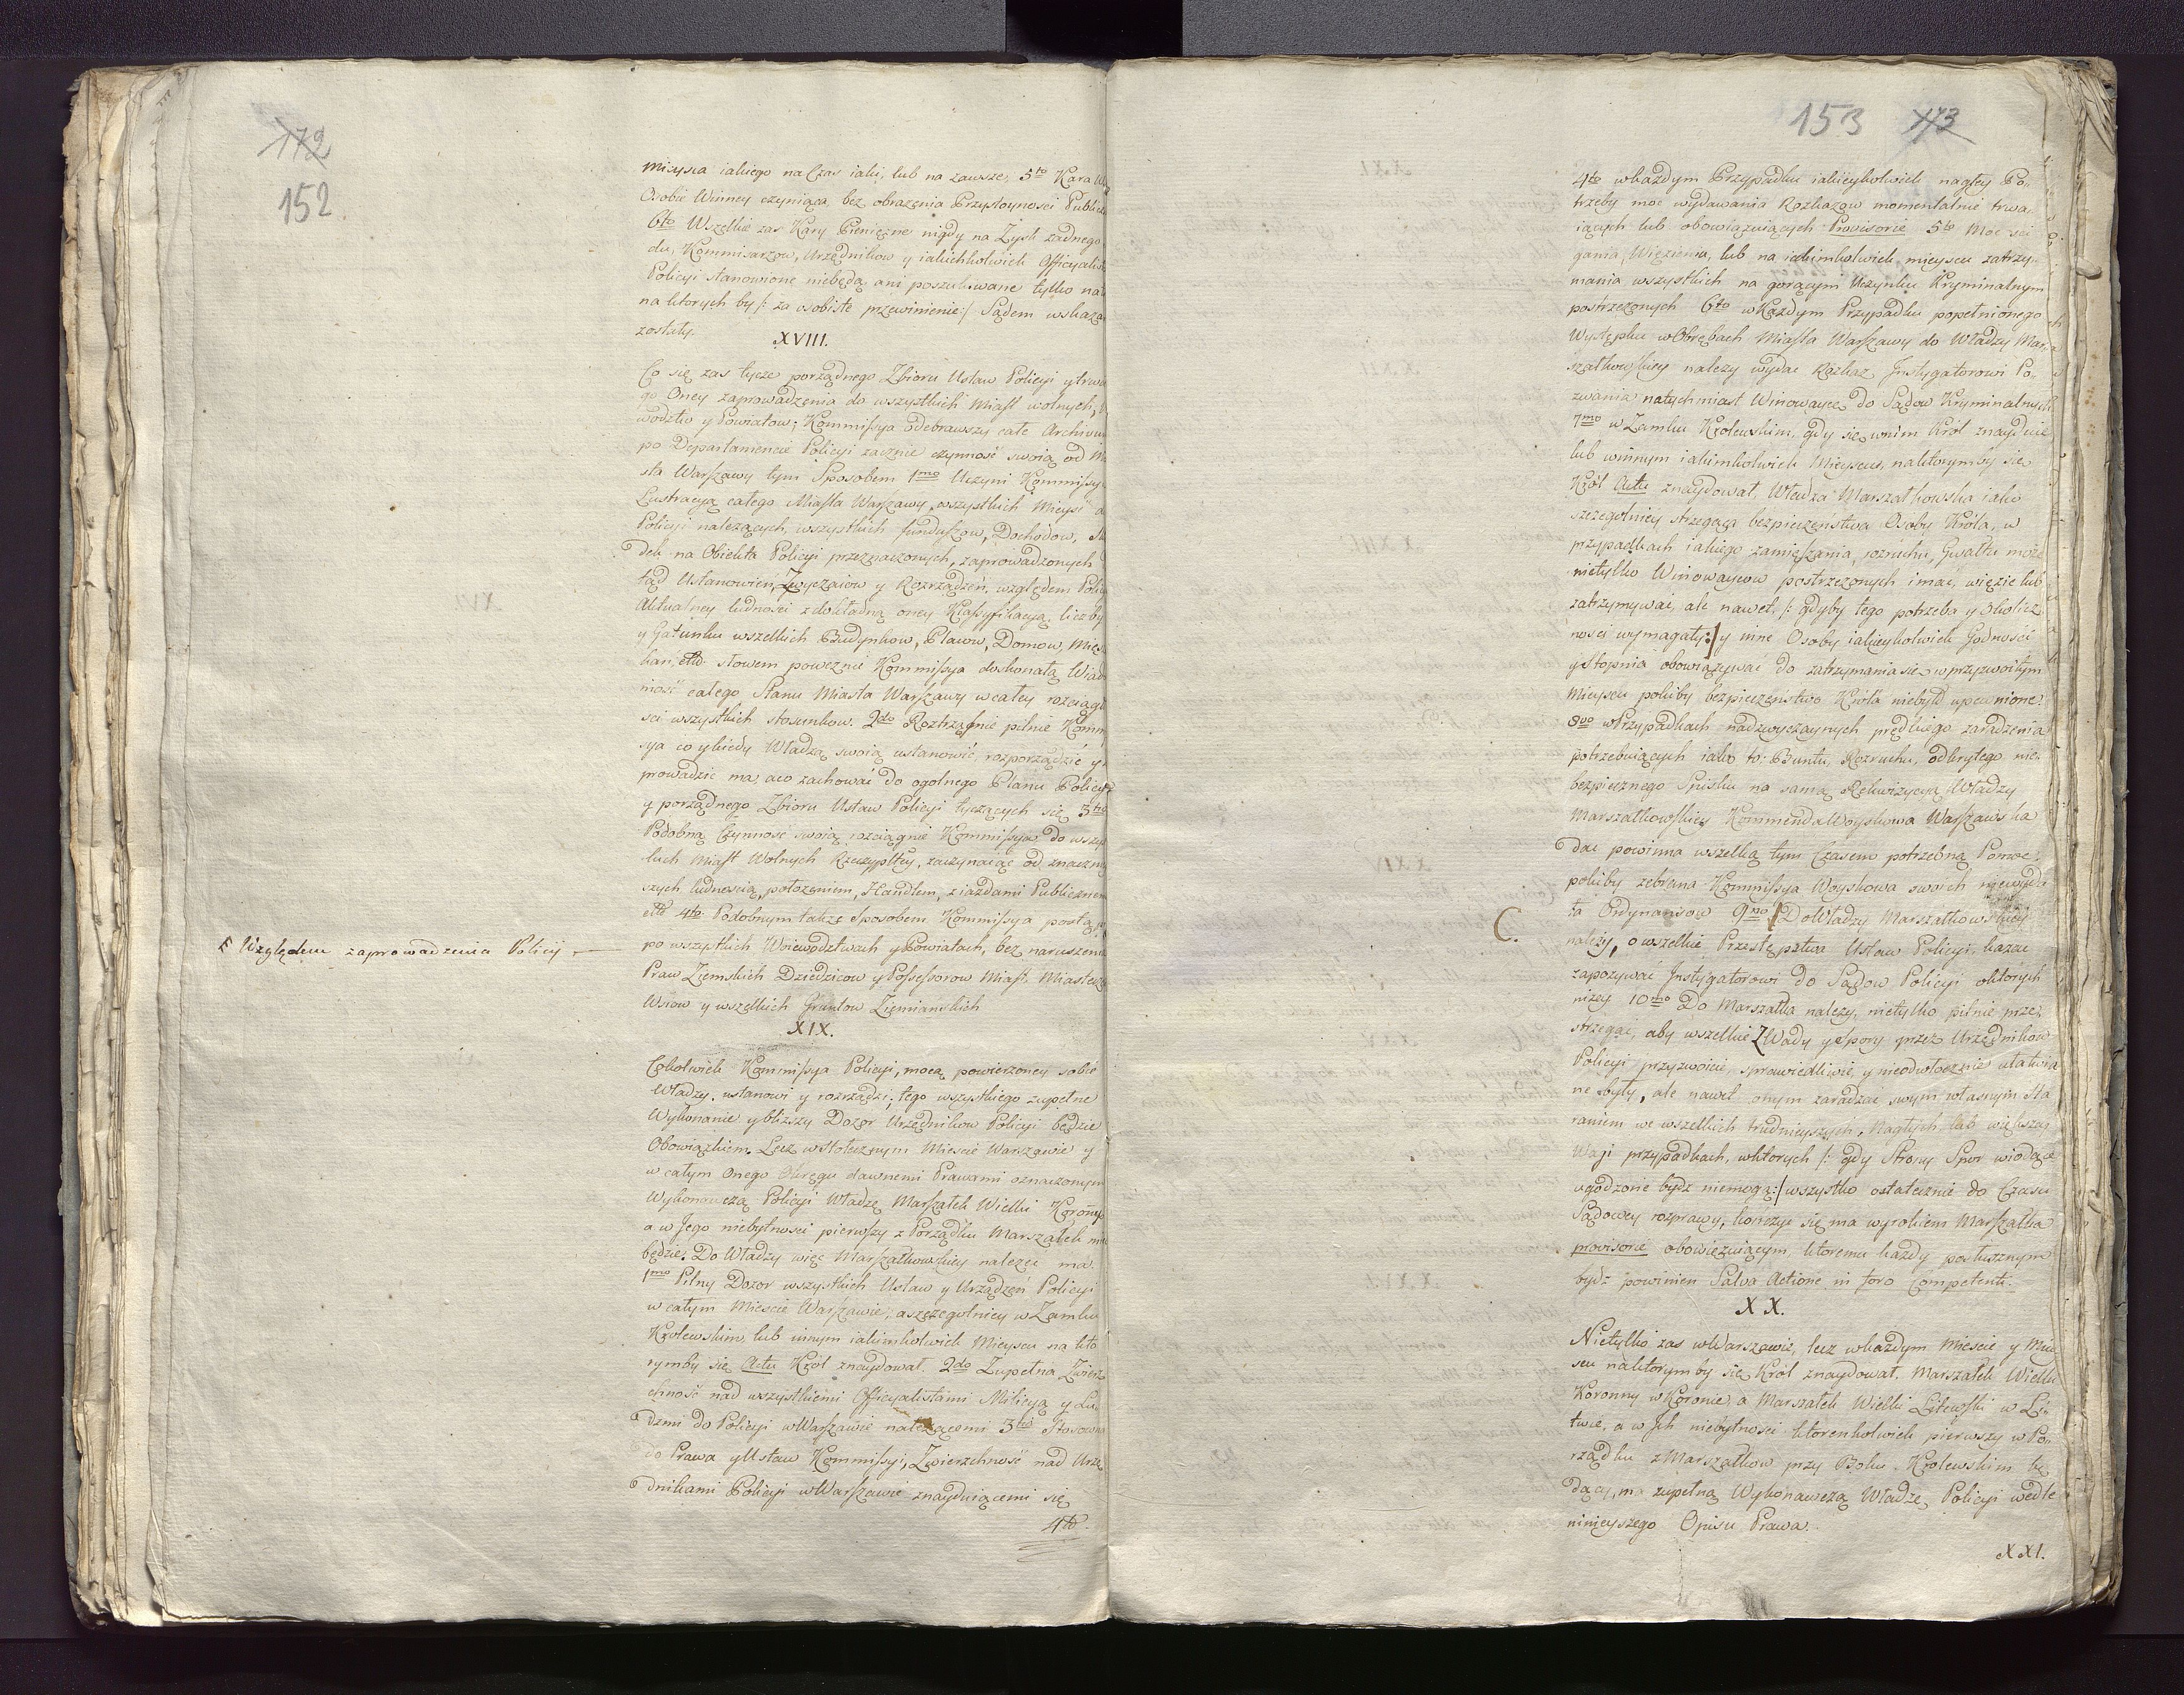 172
152.
Mieysca iakiego na Czas iaki, lub na zawsze, 5to Kara
Osobie Winney czyniąca, bez obrażenia Przystoynosci
6to Wszelkie zas Kary Pieniężne nigdy na Zysk żadnego
du, Kommisarzow, Urzędnikow y iakichkolwiek
Policyi stanowione niebędą, ani poszukiwane tylko
na ktorych by /: za osobiste przewinienie :/ Sądem
zostały.
XVIII.
Co się zas tycze porządnego Zbioru Ustaw Policyi
go Oney zaprowadzenia do wszystkich Miast wolnych,
wodztw y Powiatow; Kommissya odebrawszy całe
po Departamencie Policyi zacznie czynność swoią od
sta Warszawy tym Sposobem 1mo Uczyni
Lustracyą całego Miasta Warszawy, wszystkich
Policyi należących, wszystkich funduszow, Dochodow,
dek na Obiekta Policyi przeznaczonych, zaprowadzonych
tąd Ustanowien, Zwyczaiow y Rozrządzeń, względem
Aktualney ludnosci z dokładną oney Klassyfikacyą, liczby
y Gatunku wszelkich Budynkow, Placow, Domow,
kań, etc: słowem poweźnie Kommissya doskonałą
mość całego Stanu Miasta Warszawy w całey
sci wszystkich stosunkow. 2do Roztrząśnie pilnie
sya co y kiedy Władzą swoią ustanowić, rozporządzić y
prowadzic ma, a co zachować do ogolnego Planu
y porządnego Zbioru Ustaw Policyi tyczących się 3tio
Podobną Czynność swoią rozciągnie Kommissya do
kich Miast Wolnych Rzeczypltey, zaczynaiąc od
szych ludnoscią, położeniem, Handlem, ziazdami
etc 4to Podobnym także Sposobem Kommissya
F Względem zaprowadzenia Policyi —
po wszystkich Woiewodztwach y Powiatach, bez
Praw Ziemskich Dziedzicow y Possessorow Miast,
Wsiow y wszelkich Gruntow Ziemianskich
XIX.
Cokolwiek Kommissya Policyi, mocą powierzoney sobie
Władzy, ustanowi y rozrządzi; tego wszystkiego zupełne
Wykonanie y bliższy Dozor Urzędnikow Policyi będzie
Obowiązkiem. Lecz w Stołecznym Miescie Warszawie y
w całym Onego Okręgu dawnemi Prawami oznaczonym
Wykonawczą Policyi Władzę Marszałek Wielki
a w Jego niebytnosci pierwszy z Porządku Marszałek
będzie. Do Władzy więc Marszałkowskiey należec ma
1mo Pilny Dozor wszystkich Ustaw y Urządzeń Policyi
w całym Miescie Warszawie, a szczegolniey w Zamku
Krolewskim, lub innym iakimkolwiek Mieyscu na kto
rymby się Actu Krol znaydował. 2do Zupełna
chność nad wszystkiemi Officyalistami Milicyą y
dźmi do Policyi w Warszawie należącemi 3tio
do Prawa y Ustaw Kommissyi, Zwierzchność nad
dnikami Policyi w Warszawie znayduiącemi się
4to
153 173
4to w każdym Przypadku iakieykolwiek nagłey Po-
trzeby moc wydawania Rozkazow momentalnie trwa-
iących lub obowiązuiących Provisorie 5to Moc sci-
gania, Więzienia, lub na iakimkolwiek mieyscu zatrzy-
mania wszystkich na gorącym Uczynku Kryminalnym
postrzeżonych 6to w Każdym Przypadku popełnionego
Występku w Obrębach Miasta Warszawy do Władzy Mar-
szałkowskiey należy wydac Rozkaz Instygatorowi Po-
zwania natychmiast Winowaycę do Sądow Kryminalnych
7mo w Zamku Krolewskim, gdy się w nim Krol znayduie
lub w innym iakimkolwiek Mieyscu, na ktorymby się
Krol Actu znaydował, Władza Marszałkowska iako
szczegolniey strzegąca bezpieczeństwa Osoby Krola, w
przypadkach iakiego zamięszania, rozruchu, Gwałtu może
nietylko Winowaycow postrzeżonych imać, więzić lub
zatrzymywać, ale nawet, /: gdyby tego potrzeba y okolicz-
nosci wymagały :/ y inne Osoby iakieykolwiek Godności
y Stopnia obowiązywać do zatrzymania się w przyzwoitym
Mieyscu pokiby bezpieczeństwo Krola niebyło upewnione.
8vo w Przypadkach nadzwyczaynych prędkiego zaradzenia
potrzebuiących iako to: Buntu, Rozruchu, odkrytego nie-
bezpiecznego Spisku na samą Rekwizycyą Władzy
Marszałkowskiey Kommenda Woyskowa Warszawska
dac powinna wszelką tym Czasem potrzebną Pomoc.
pokiby zebrana Kommissya Woyskowa swoich niewyda
C.
ła Ordynansow 9no Do Władzy Marszałkowskiey
należy, o wszelkie Przestępstwa Ustaw Policyi, kazac
zapozywać Instygatorowi do Sądow Policyi o ktorych
niżey 10mo Do Marszałka należy, nietylko pilnie prze-
strzegac, aby wszelkie Zwady y Spory przez Urzędnikow
Policyi przyzwoicie, sprawiedliwie, y nieodwłocznie ułatwia
ne były, ale nawet onym zaradzac swym własnym Sta
raniem we wszelkich trudnieyszych, Nagłych lub większey
Wagi przypadkach, w ktorych /: gdy Strony Spor wiodące
ugodzone bydz niemogą :/ wszystko ostatecznie do Czasu
Sądowey rozprawy, konczyc się ma wyrokiem Marszałka
provisorie obowięzuiącym, ktoremu każdy posłusznym
bydź powinien Salva Actione in foro Competenti.
XX.
Nietylko zas w Warszawie, lecz w każdym Miescie y Miey
scu na ktorymby się Krol znaydował. Marszałek Wielki
Koronny w Koronie, a Marszałek Wielki Litewski w Li-
twie, a w Ich niebytnosci ktorenkolwiek pierwszy w Po-
rządku z Marszałkow przy Boku Krolewskim bę
dący, ma zupełną Wykonawczą Władzę Policyi wedle
ninieyszego Opisu Prawa.
XXI.